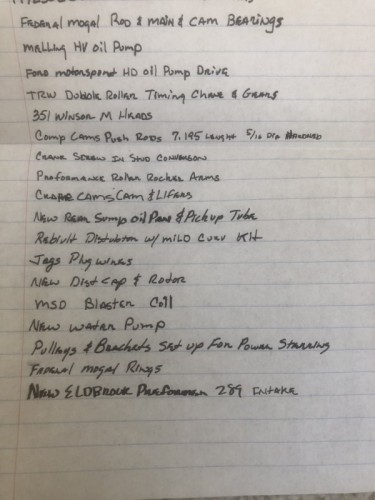 Federal mogal Rod & main & Cam Bearings
Melling HV oil Pump
Ford motorsport HD oil Pump Drive
TRW Dubble Roller Timing Chane & Gears
351 Winsor M Heads
Comp Cams Push Rods 7.195 Lenght 5/16 Dia Hardned
Crane Screw In Stud Converson
Preformance Roller Rocker Arms
Crane Cams Cam & Lifers
New Rear Sump oil Pan & Pickup Tube
Rebiult Distubtor w/ mild Curv Kit
Jegs Plug wires
New Dist cap & Rotor
MSD Blaster Coil
New water Pump
Pulleys & Brackets Set up For Power Stearing
Federal mogal Rings
New Eldbrock Preformer 289 intake